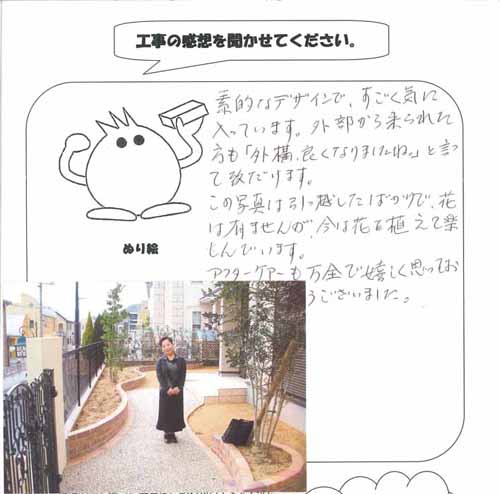 工事の感想を聞かせてください。
素的なデザインで、すごく気に
入っています。外部から来られた
方も「外構、良くなりましたね。」と言っ
て頂だけます。
この写真は引っ越したばかりで、花
は有ませんが、今は花を植えて楽
しんでいます。
アフターケアーも万全で嬉しく思ってお
うございました。
ぬり絵